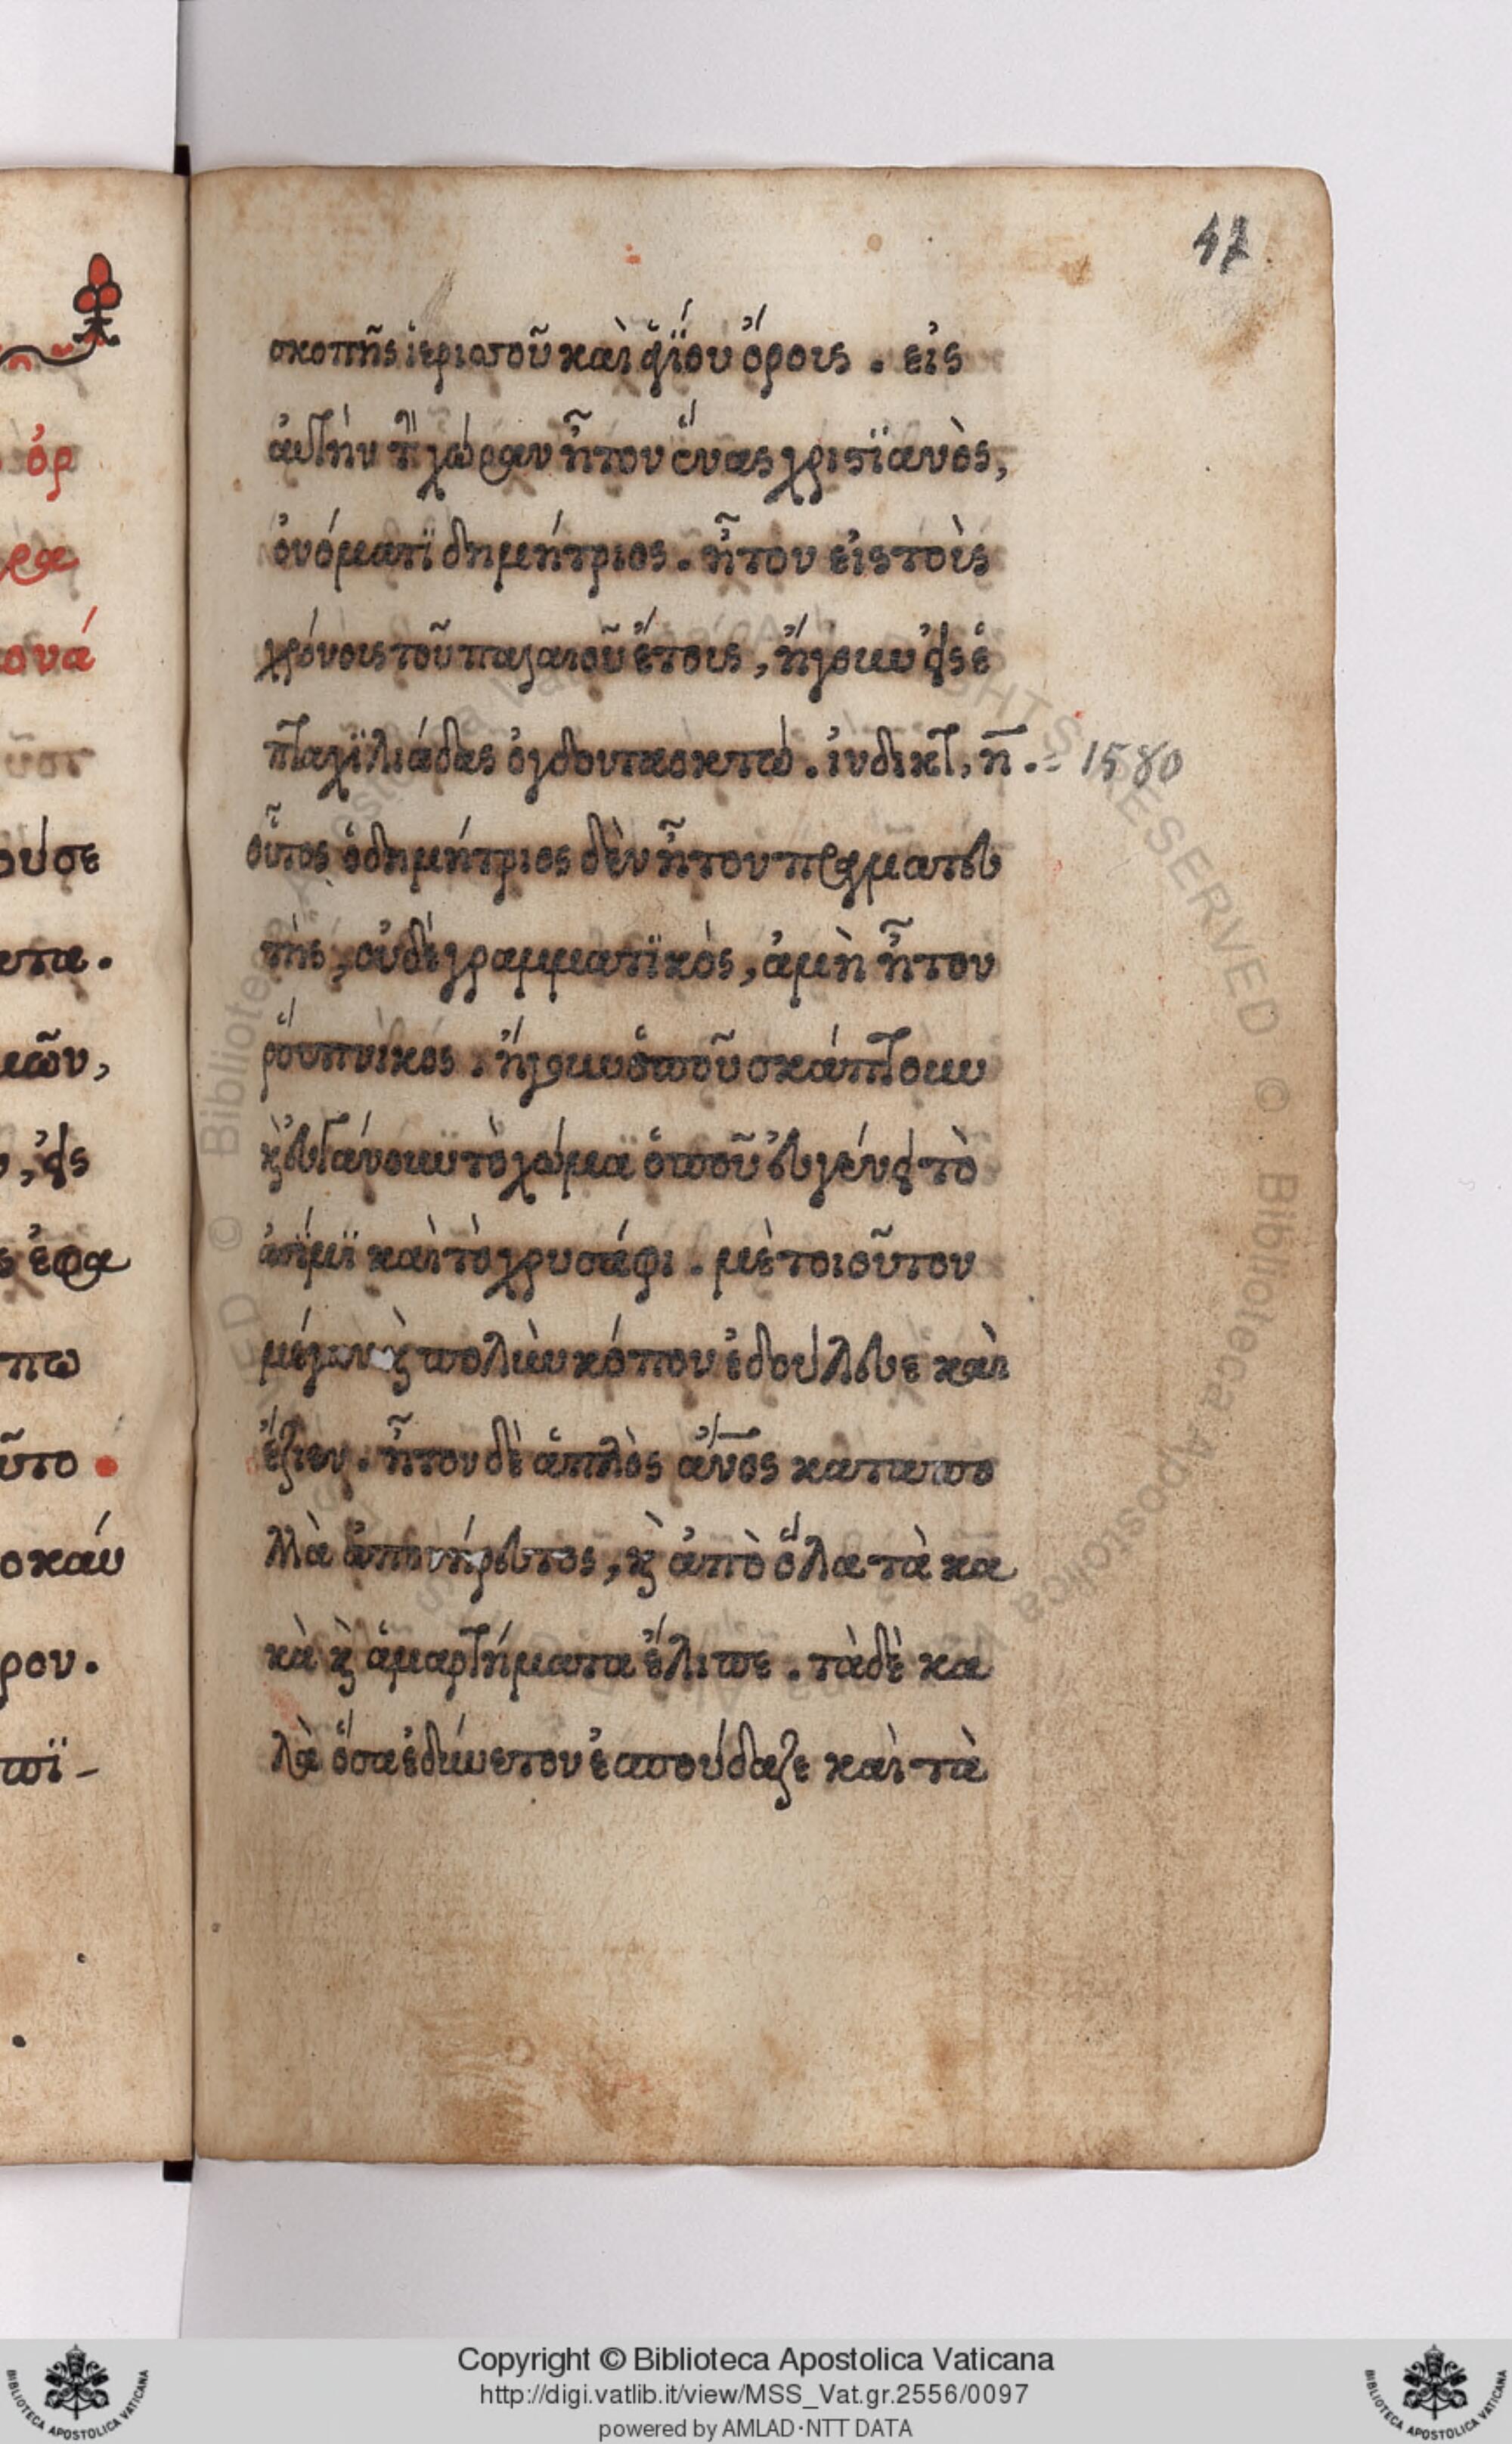 47
σκοπῆς ἱερισσοῦ καὶ ἁγΐου ὄρους . εἰς
ἀυτὴν τὴν χώραν ἦτον ἕνας χριστϊανὸς,
ὀνόματϊ δημήτριος . ἦτον εἰς τοὺς
χρόνους τοῦ παλαιοῦ ἔτους, ἤγουν εἰς ἑ
πταχϊλιάδας ὀγδονταοκτώ . ἰνδικτ, η . 1580
οὗτος ὁ δημήτριος δὲν ἦτον πραγματευ
τὴς, οὐδὲ γραμματϊκὸς, ἀμὴ ἦτον
ῥουπνϊκός . ἤγουν ὁποῦ σκάπτουν
κὶ ἐυγάνουν τὸ χώμα ὁποῦ ἐυγένει τὸ
ἀσῆμϊ καὶ τὸ χρυσάφι . μὲ τοιοῦτον
μέγαν κὶ πολὺν κόπον ἐδούλευε καὶ
ἔζιεν . ἦτον δὲ ἁπλὸς ἄνος κατὰ πο
λλὰ ἀπονήρευτος, κὶ ἀπὸ ὅλα τὰ κα
κὰ κὶ ἁμαρτήματα ἔλιπε . τὰ δὲ κα
λὰ ὅσα ἐδύνετον ἐσπούδαζε καὶ τὰ
Copyright © Biblioteca Apostolica Vaticana
http://digi.vatlib.it/view/MSS_Vat.gr.2556/0097
powered by AMLAD·NTT DATA